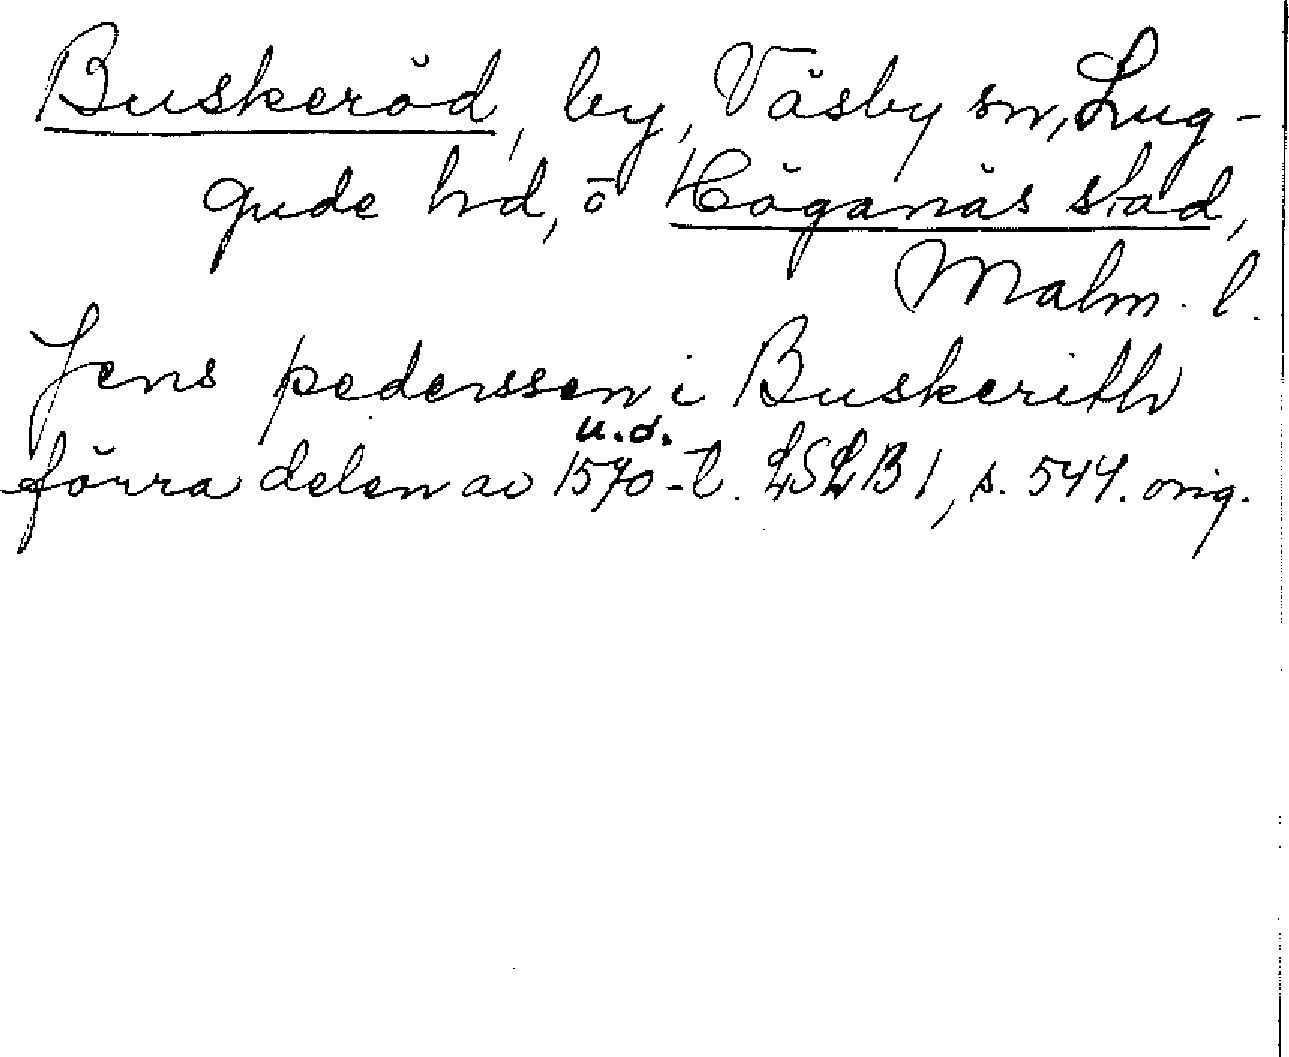 Buskeröd, by, Väsby sn, Lug-
gude hd, ö Höganäs stad,
Malm. l.
Jens pederssen i Buskerith
u.d.
förra delen av 1570-t. LSLB 1, s. 544. orig.